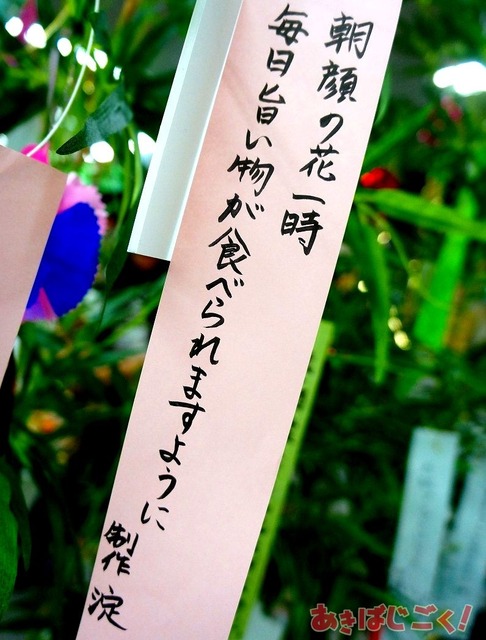 朝顔の花一時
毎日旨い物が食べられますように
制作 淀
あきばじごく!